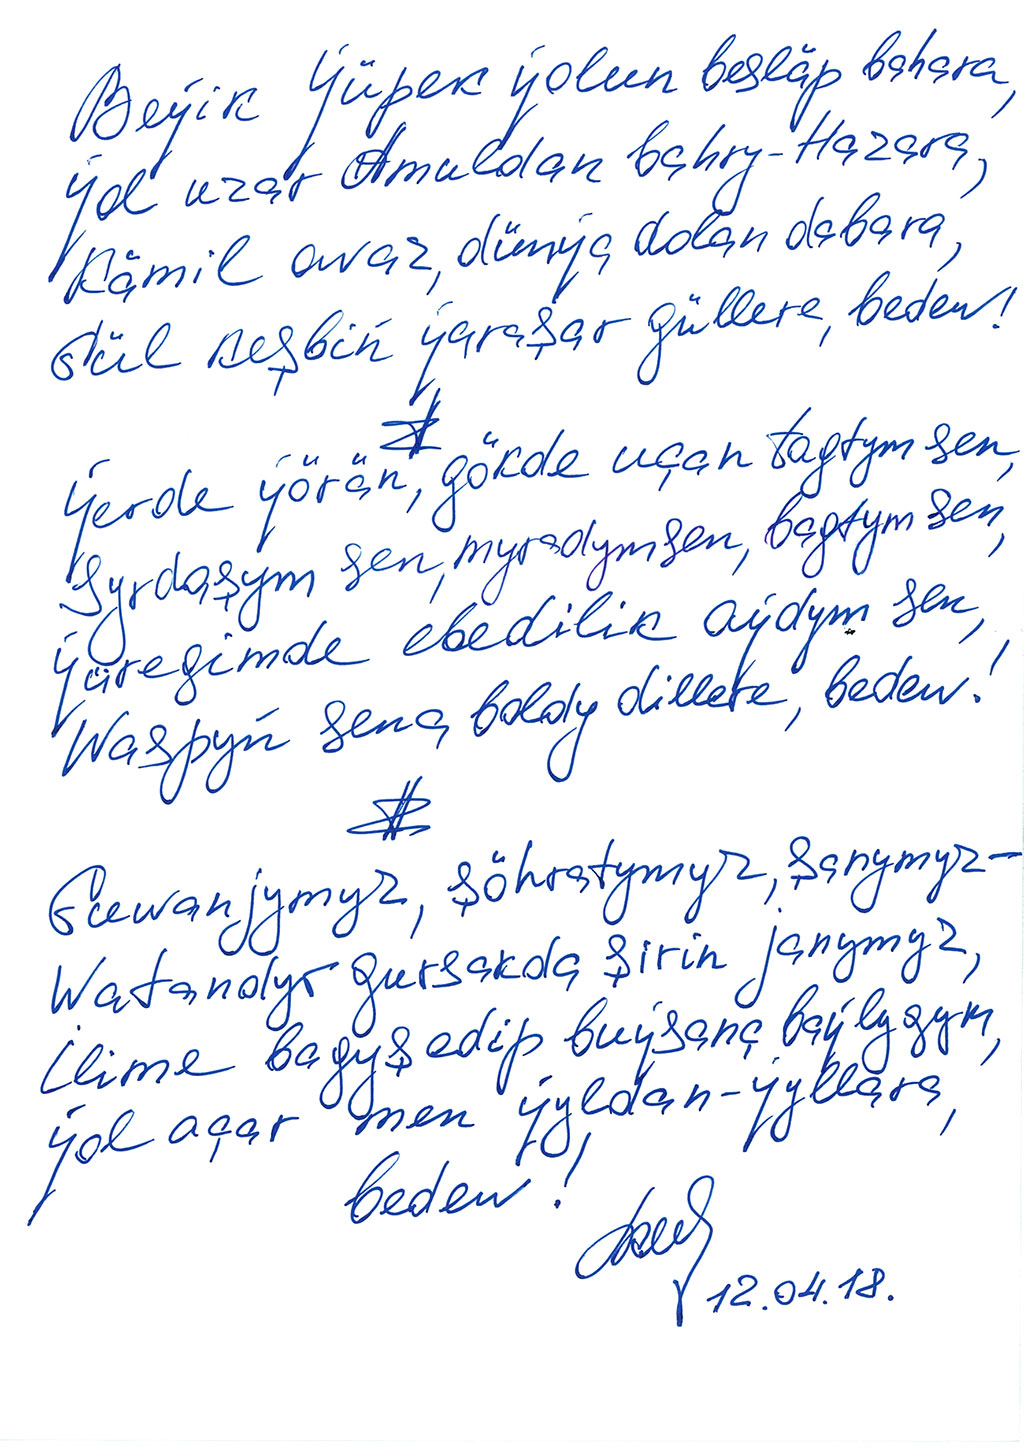 Beýik Ýüpek ýolun beslȁp bahara,
Ýol uzar Amuldan bahry-Hazara,
Kämil owaz, dünýä dolan dabara,
Gül keşbiň ýaraşar güllere, bedew!
Ýerde ýörän, gökde uçan tagtym sen,
Syrdaşym sen, myradym sen, bagtym sen,
Ýüregimde ebedilik aýdym sen,
Waspyň sena boldy dillere, bedew!
Guwanjymyz, şöhratymyz, şanymyz-
Watandyr gursakda şirin janymyz,
Ilime bagyş edip buýsanç baýlygym,
Ýol açar men ýyldan-ýyllara,
bedew!
12.04.18.